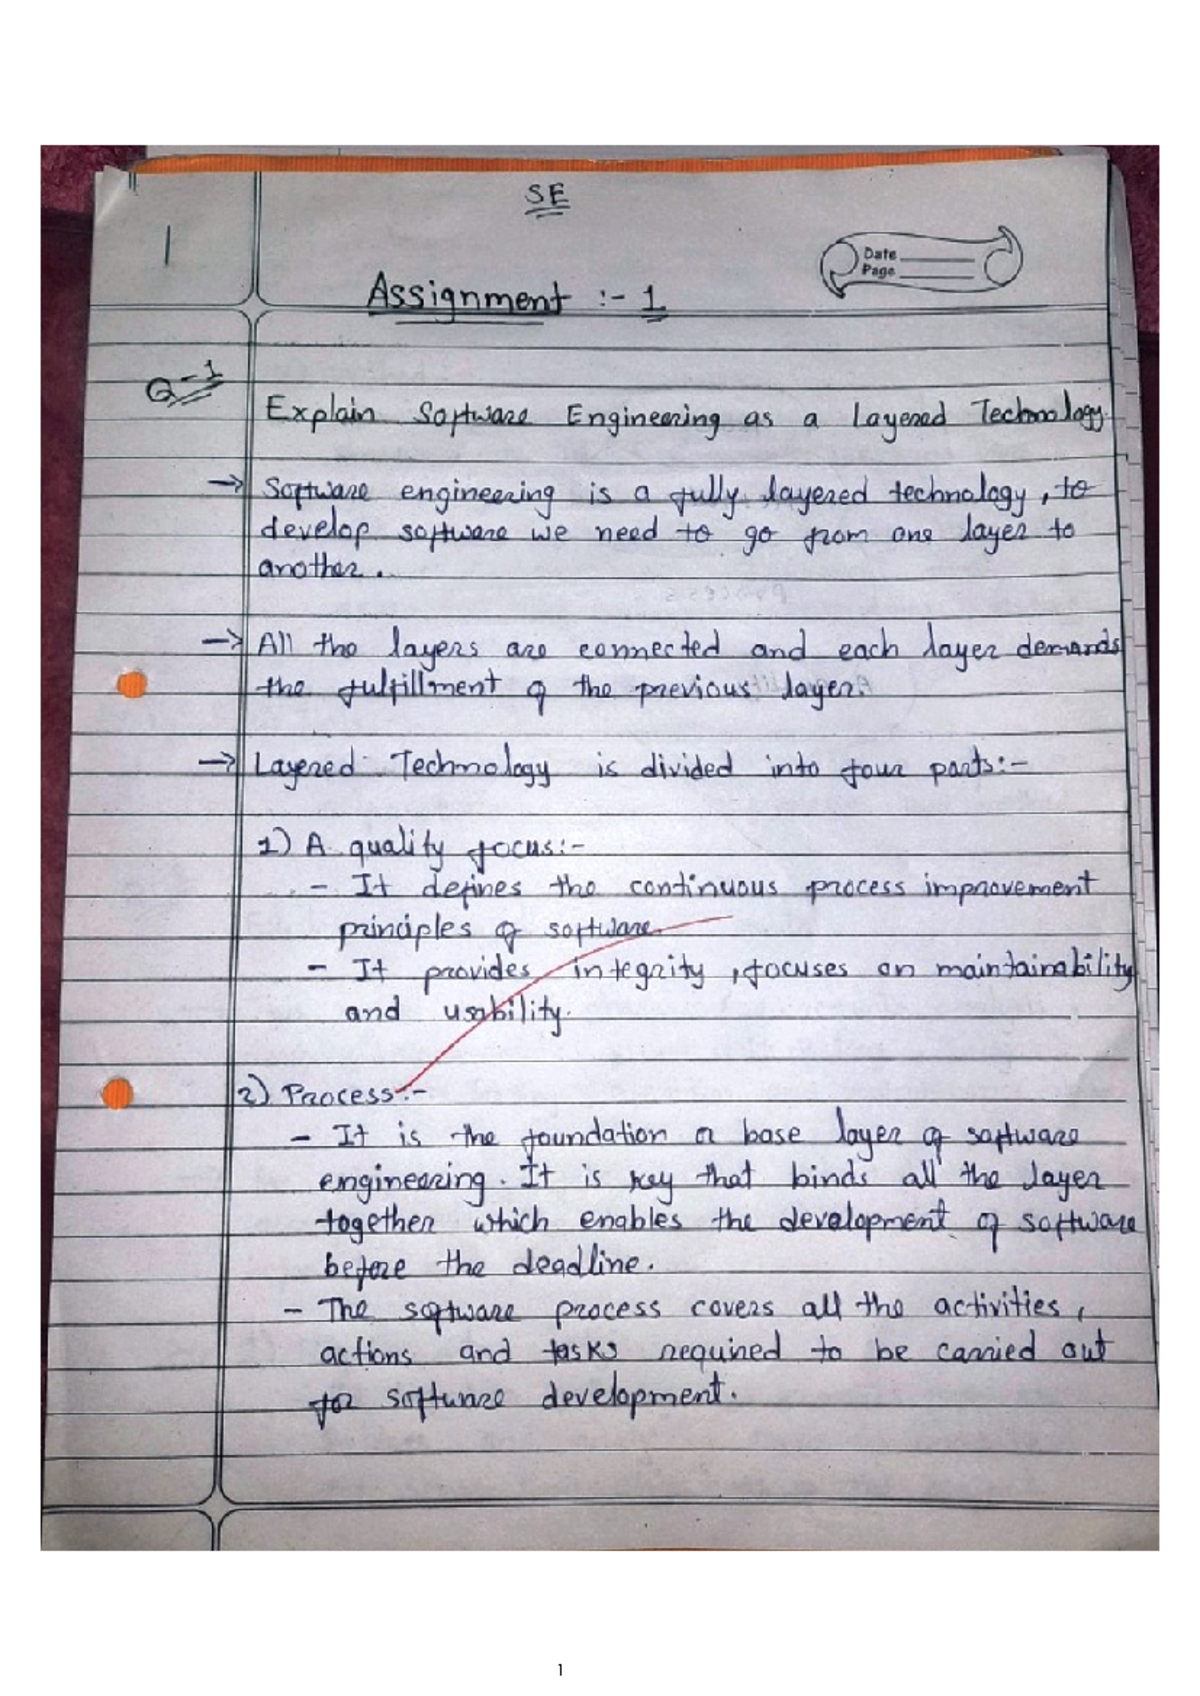 SE
1
Date
Page
Assignment :- 1
Q-1
Explain Software Engineering as a Layered Technology.
→ Software engineering is a fully layered technology, to
develop software we need to go from one layer to
another.
→ All the layers are connected and each layer demands
the fulfillment of the previous layer.
→ Layered Technology is divided into four parts:-
1) A quality focus:-
- It defines the continuous process improvement
principles of software.
- It provides integrity, focuses on maintainability
and usability.
2) Process:-
- It is the foundation or base layer of software
engineering. It is key that binds all the layer
together which enables the development of software
before the deadline.
- The software process covers all the activities,
actions and tasks required to be carried out
for software development.
1